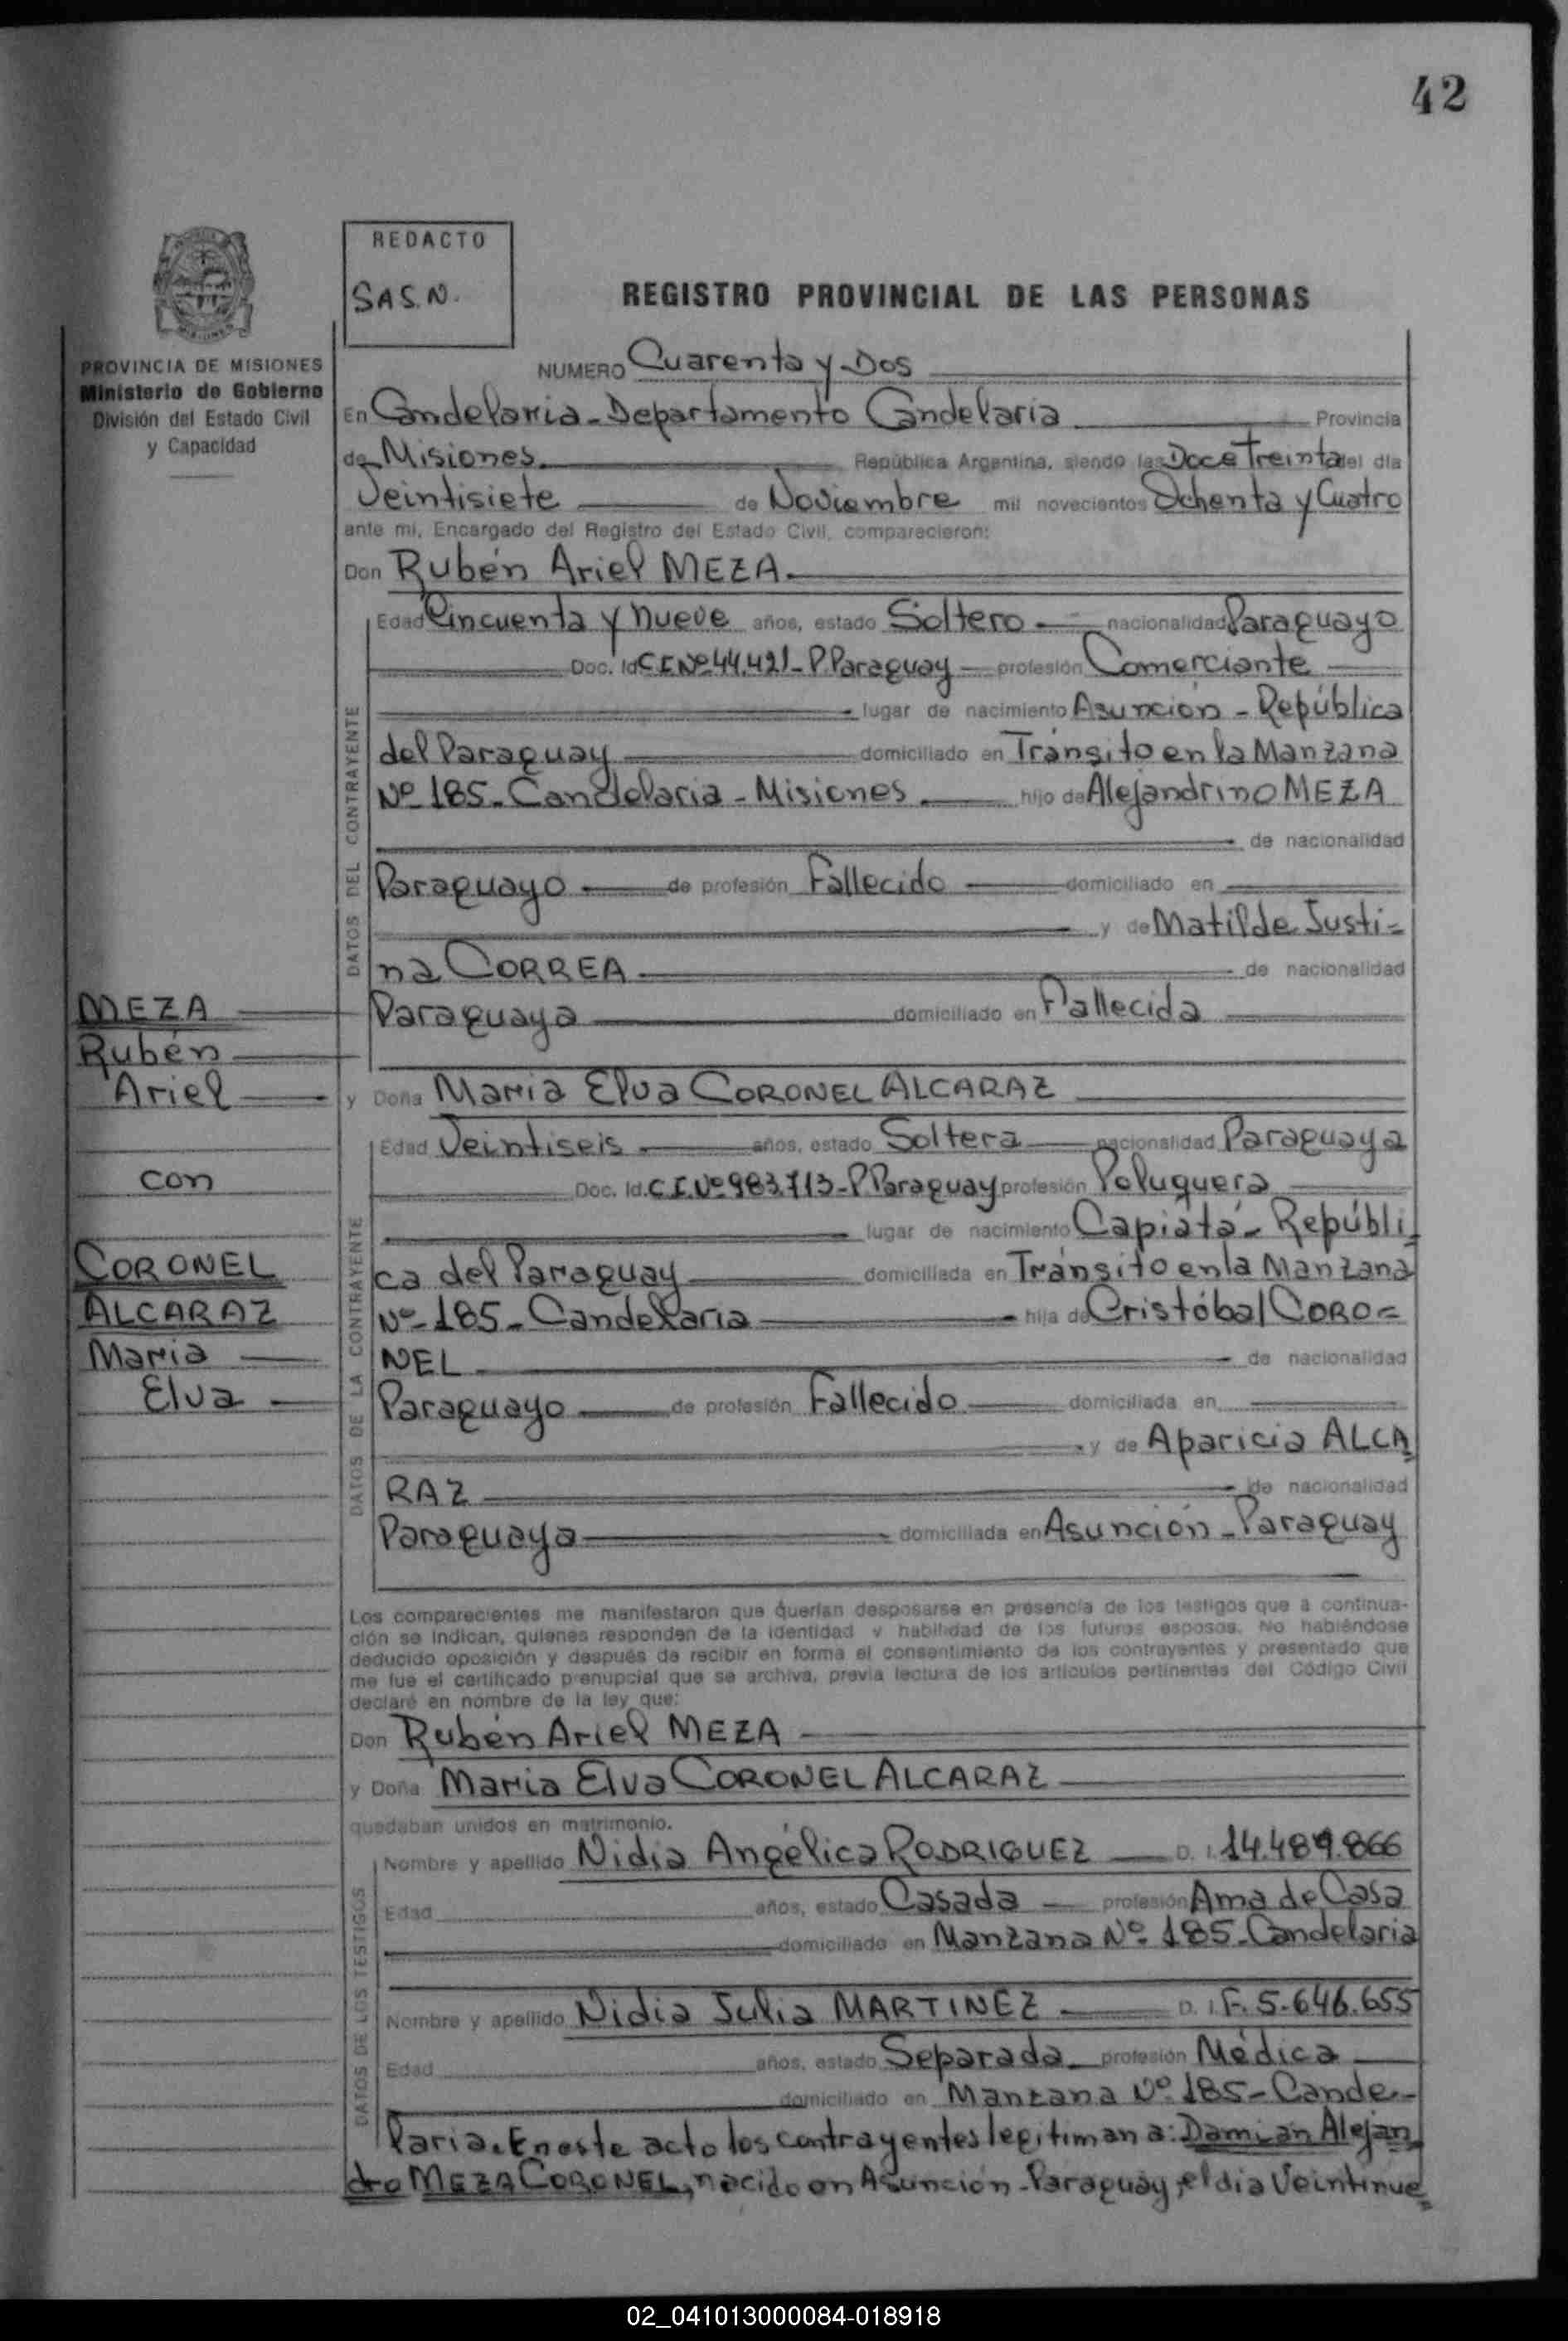 42
REDACTO
SAS.N.
REGISTRO PROVINCIAL DE LAS PERSONAS
PROVINCIA DE MISIONES
Ministerio de Gobierno
División del Estado Civil
y Capacidad
NUMERO Cuarenta y Dos
En Candelaria - Departamento Candelaria Provincia
de Misiones República Argentina, siendo las Doce Treinta del día
Veintisiete de Noviembre mil novecientos Ochenta y Cuatro
ante mi, Encargado del Registro del Estado Civil, comparecieron:
Don Rubén Ariel MEZA
DATOS DEL CONTRAYENTE
Edad Cincuenta y nueve años, estado Soltero nacionalidad Paraguayo
Doc. Id C.I.Nº 44.421 - P. Paraguay profesión Comerciante
lugar de nacimiento Asunción - República
del Paraguay domiciliado en Tránsito en la Manzana
Nº 185 - Candelaria - Misiones hijo de Alejandrino MEZA
de nacionalidad
Paraguayo de profesión Fallecido domiciliado en
y de Matilde Justi=
na CORREA de nacionalidad
Paraguaya domiciliado en Fallecida
y Doña Maria Elva CORONEL ALCARAZ
DATOS DE LA CONTRAYENTE
Edad Veintiseis años, estado Soltera nacionalidad Paraguaya
Doc. Id. C.I.Nº 983.713 - P. Paraguay profesión Peluquera
lugar de nacimiento Capiatá - Repúbli
ca del Paraguay domiciliada en Tránsito en la Manzana
Nº 185 - Candelaria hija de Cristóbal CORO=
NEL de nacionalidad
Paraguayo de profesión Fallecido domiciliada en
y de Aparicia ALCA
RAZ de nacionalidad
Paraguaya domiciliada en Asunción - Paraguay
MEZA
Rubén
Ariel
con
CORONEL
ALCARAZ
Maria
Elva
Los comparecientes me manifestaron que querían desposarse en presencia de los testigos que a continua-
ción se indican, quienes responden de la identidad y habilidad de los futuros esposos. No habiéndose
deducido oposición y después de recibir en forma el consentimiento de los contrayentes y presentado que
me fue el certificado prenupcial que se archiva, previa lectura de los artículos pertinentes del Código Civil
declaré en nombre de la ley que:
Don Rubén Ariel MEZA
y Doña Maria Elva CORONEL ALCARAZ
quedaban unidos en matrimonio.
DATOS DE LOS TESTIGOS
Nombre y apellido Nidia Angélica RODRIGUEZ D. I. 14.489.866
Edad años, estado Casada profesión Ama de Casa
domiciliado en Manzana Nº 185 - Candelaria
Nombre y apellido Nidia Julia MARTINEZ D. I. F. 5.646.655
Edad años, estado Separada profesión Médica
domiciliado en Manzana Nº 185 - Cande-
laria. En este acto los contrayentes legitiman a: Damián Alejan
dro MEZA CORONEL, nacido en Asunción - Paraguay, el día Veintinue=
02_041013000084-018918